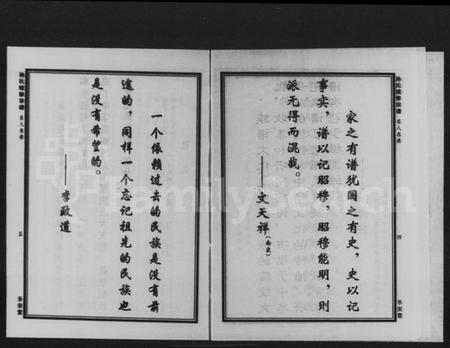 家之有谱犹国之有史，史以记
事实，谱以记昭穆，昭穆能明，则
派无得而混哉。
——文天祥（南宋）
四
乐安堂
一个依赖过去的民族是没有前
途的，同样一个忘记祖先的民族也
是没有希望的。
——李政道
五
乐安堂
FamilySearch